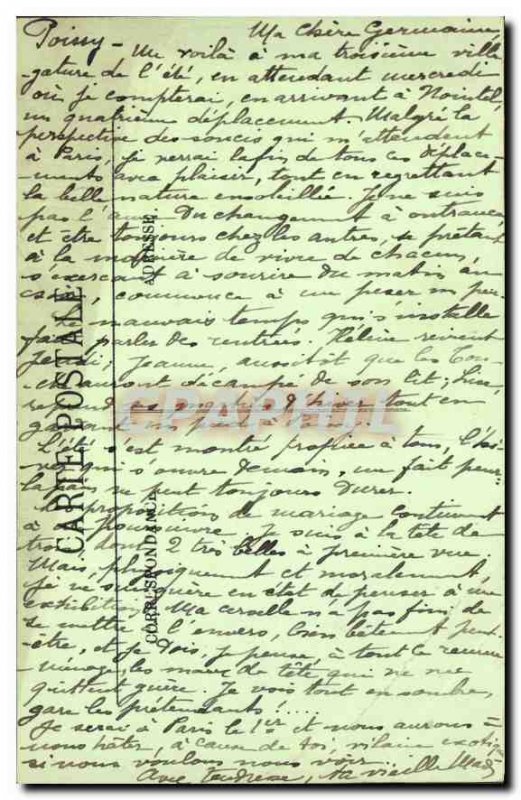 Poissy - Ma chère Germaine,
Me voilà à ma troisième villé-
giature de l'été, en attendant mercredi
où je compterai, en arrivant à Nointel,
un quatrième déplacement. Malgré la
perspective des soucis qui m'attendent
à Paris, je verrai la fin de tous ces déplace-
-ments avec plaisir, tout en regrettant
la belle nature ensoleillée. Je ne suis
pas l'amie du changement à outrance,
et être toujours chez les autres, se prêtant
à la manière de vivre de chacun,
s'exerçant à sourire du matin au
commence à me peser un peu
mauvais temps qui s'installe
fait parler des rentrées. Hélène revient
jeudi, Jeanne, aussitôt que les
auront décampé de son lit; Lise,
reprend ses quartiers d'hiver tout en
gardant un pied à
L'été s'est montré propice à tous, l'hi-
ver qui s'ouvre demain, me fait peur.
ne peut toujours durer.
Les propositions de mariage continuent
à poursuivre. Je suis à la tête de
trois, dont 2 très belles à première vue.
Mais, physiquement et moralement,
je ne suis guère en état de penser à une
exhibition. Ma cervelle n'a pas fini de
se mettre à l'envers, bien bêtement peut-
être, et je dois, je pense, à tout ce remue-
-ménage, les maux de tête qui ne me
quittent guère. Je vois tout en sombre,
gare les prétendants!....
Je serai à Paris le 1er et nous aurons =
nous hâter, à cause de toi, vilaine
si nous voulons nous voir.
Avec tendresse, ta vieille Mad
CARTE POSTALE
CORRESPONDANCE
ADRESSE
CPAPHIL